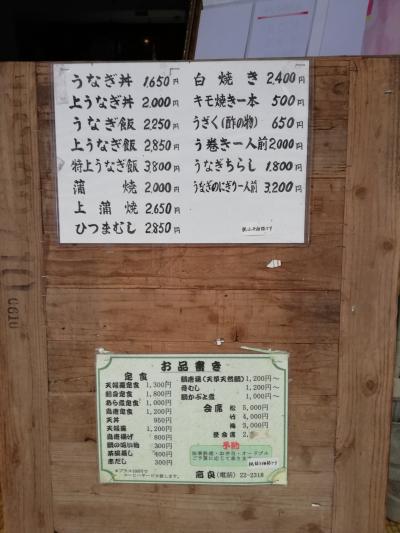 うなぎ丼 1,650円
上うなぎ丼 2,000円
うなぎ飯 2,250円
上うなぎ飯 2,850円
特上うなぎ飯 3,800円
蒲焼 2,000円
上蒲焼 2,650円
ひつまむし 2,850円
白焼き 2,400円
キモ焼き一本 500円
うざく(酢の物) 650円
う巻き一人前 2,000円
うなぎちらし 1,800円
うなぎのにぎり一人前 3,200円
お品書き
定食
天婦羅定食 1,300円
刺身定食 1,800円
あら煮定食 1,000円
鳥唐定食 1,200円
天丼 950円
天婦羅 1,200円
鳥唐揚げ 800円
鯛の吸い物 300円
茶碗蒸し 400円
赤だし 300円
鯛唐揚(天草天然鯛) 1,200円～
骨むし 1,200円～
鯛かぶと煮 1,000円～
会席 松 5,000円
竹 4,000円
梅 3,000円
昼会席
予約
(電話) 22-2318
0610